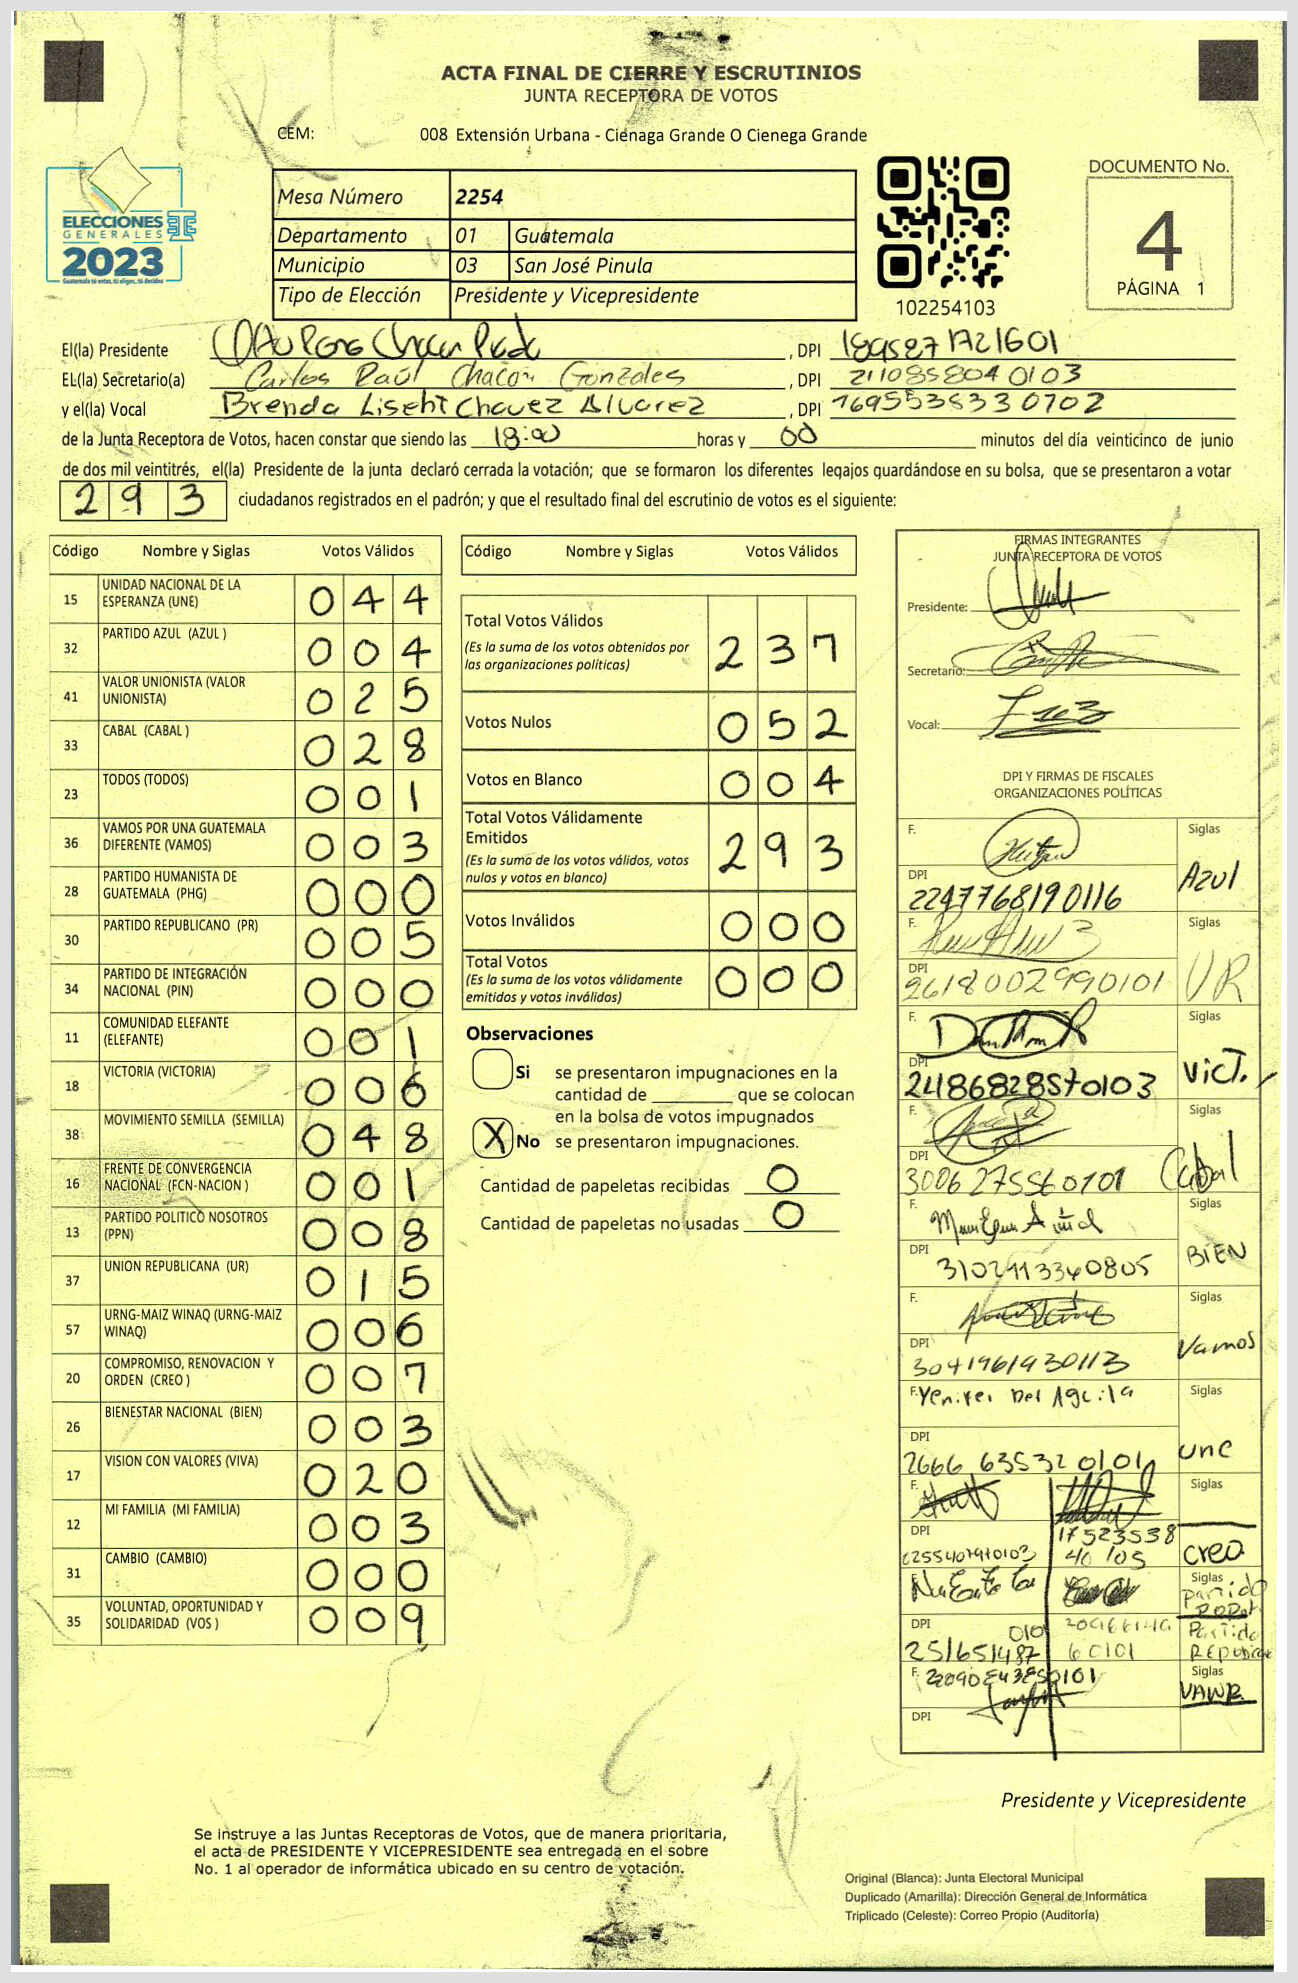 ACTA FINAL DE CIERRE Y ESCRUTINIOS
JUNTA RECEPTORA DE VOTOS
CEM: 008 Extensión Urbana - Ciénaga Grande O Cienega Grande
ELECCIONES
GENERALES
2023
Guatemala tú votas, tú eliges, tú decides
Mesa Número 2254
Departamento 01 Guatemala
Municipio 03 San José Pinula
Tipo de Elección Presidente y Vicepresidente
102254103
DOCUMENTO No.
4
PÁGINA 1
El(la) Presidente Chacon , DPI
EL(la) Secretario(a) Carlos Raúl Chacón Gonzales , DPI 2110858040103
y el(la) Vocal Brenda Liseht Chavez Alvarez , DPI 1695538330702
de la Junta Receptora de Votos, hacen constar que siendo las 18:00 horas y 00 minutos del día veinticinco de junio
de dos mil veintitrés, el(la) Presidente de la junta declaró cerrada la votación; que se formaron los diferentes legajos guardándose en su bolsa, que se presentaron a votar
293 ciudadanos registrados en el padrón; y que el resultado final del escrutinio de votos es el siguiente:
Código Nombre y Siglas Votos Válidos
15 UNIDAD NACIONAL DE LA ESPERANZA (UNE) 044
32 PARTIDO AZUL (AZUL ) 004
41 VALOR UNIONISTA (VALOR UNIONISTA) 025
33 CABAL (CABAL ) 028
23 TODOS (TODOS) 001
36 VAMOS POR UNA GUATEMALA DIFERENTE (VAMOS) 003
28 PARTIDO HUMANISTA DE GUATEMALA (PHG) 000
30 PARTIDO REPUBLICANO (PR) 005
34 PARTIDO DE INTEGRACIÓN NACIONAL (PIN) 000
11 COMUNIDAD ELEFANTE (ELEFANTE) 001
18 VICTORIA (VICTORIA) 006
38 MOVIMIENTO SEMILLA (SEMILLA) 048
16 FRENTE DE CONVERGENCIA NACIONAL (FCN-NACION ) 001
13 PARTIDO POLITICO NOSOTROS (PPN) 008
37 UNION REPUBLICANA (UR) 015
57 URNG-MAIZ WINAQ (URNG-MAIZ WINAQ) 006
20 COMPROMISO, RENOVACION Y ORDEN (CREO ) 007
26 BIENESTAR NACIONAL (BIEN) 003
17 VISION CON VALORES (VIVA) 020
12 MI FAMILIA (MI FAMILIA) 003
31 CAMBIO (CAMBIO) 000
35 VOLUNTAD, OPORTUNIDAD Y SOLIDARIDAD (VOS ) 009
Código Nombre y Siglas Votos Válidos
Total Votos Válidos 237
(Es la suma de los votos obtenidos por
las organizaciones políticas)
Votos Nulos 052
Votos en Blanco 004
Total Votos Válidamente
Emitidos 293
(Es la suma de los votos válidos, votos
nulos y votos en blanco)
Votos Inválidos 000
Total Votos 000
(Es la suma de los votos válidamente
emitidos y votos inválidos)
Observaciones
Si se presentaron impugnaciones en la
cantidad de ________ que se colocan
en la bolsa de votos impugnados
X No se presentaron impugnaciones.
Cantidad de papeletas recibidas 0
Cantidad de papeletas no usadas 0
FIRMAS INTEGRANTES
JUNTA RECEPTORA DE VOTOS
Presidente:
Secretario:
Vocal:
DPI Y FIRMAS DE FISCALES
ORGANIZACIONES POLÍTICAS
F. Siglas
DPI Azul
2247768190116
F. Siglas
DPI UR
2618002990101
F. Siglas
DPI VICT.
2486828570103
F. Siglas
DPI Cabal
F. Siglas
DPI BIEN
F. Siglas
DPI Vamos
3041961930113
F. Yenifer Del Aguila Siglas
DPI une
2666 63532 0101
F. Siglas
DPI creo
F. Siglas
Partido
DPI Partido
F. Siglas
DPI
Presidente y Vicepresidente
Se instruye a las Juntas Receptoras de Votos, que de manera prioritaria,
el acta de PRESIDENTE Y VICEPRESIDENTE sea entregada en el sobre
No. 1 al operador de informática ubicado en su centro de votación.
Original (Blanca): Junta Electoral Municipal
Duplicado (Amarilla): Dirección General de Informática
Triplicado (Celeste): Correo Propio (Auditoría)